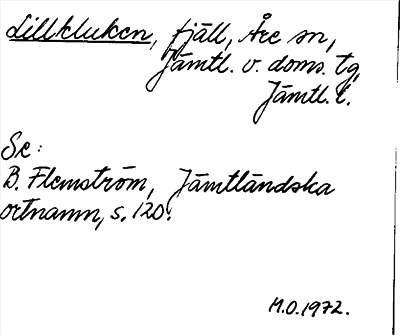 Lillkluken, fjäll, Åre sn,
Jämtl. v. doms. tg,
Jämtl. l.
Se:
B. Flemström, Jämtländska
ortnamn, s. 120.
M.O. 1972.